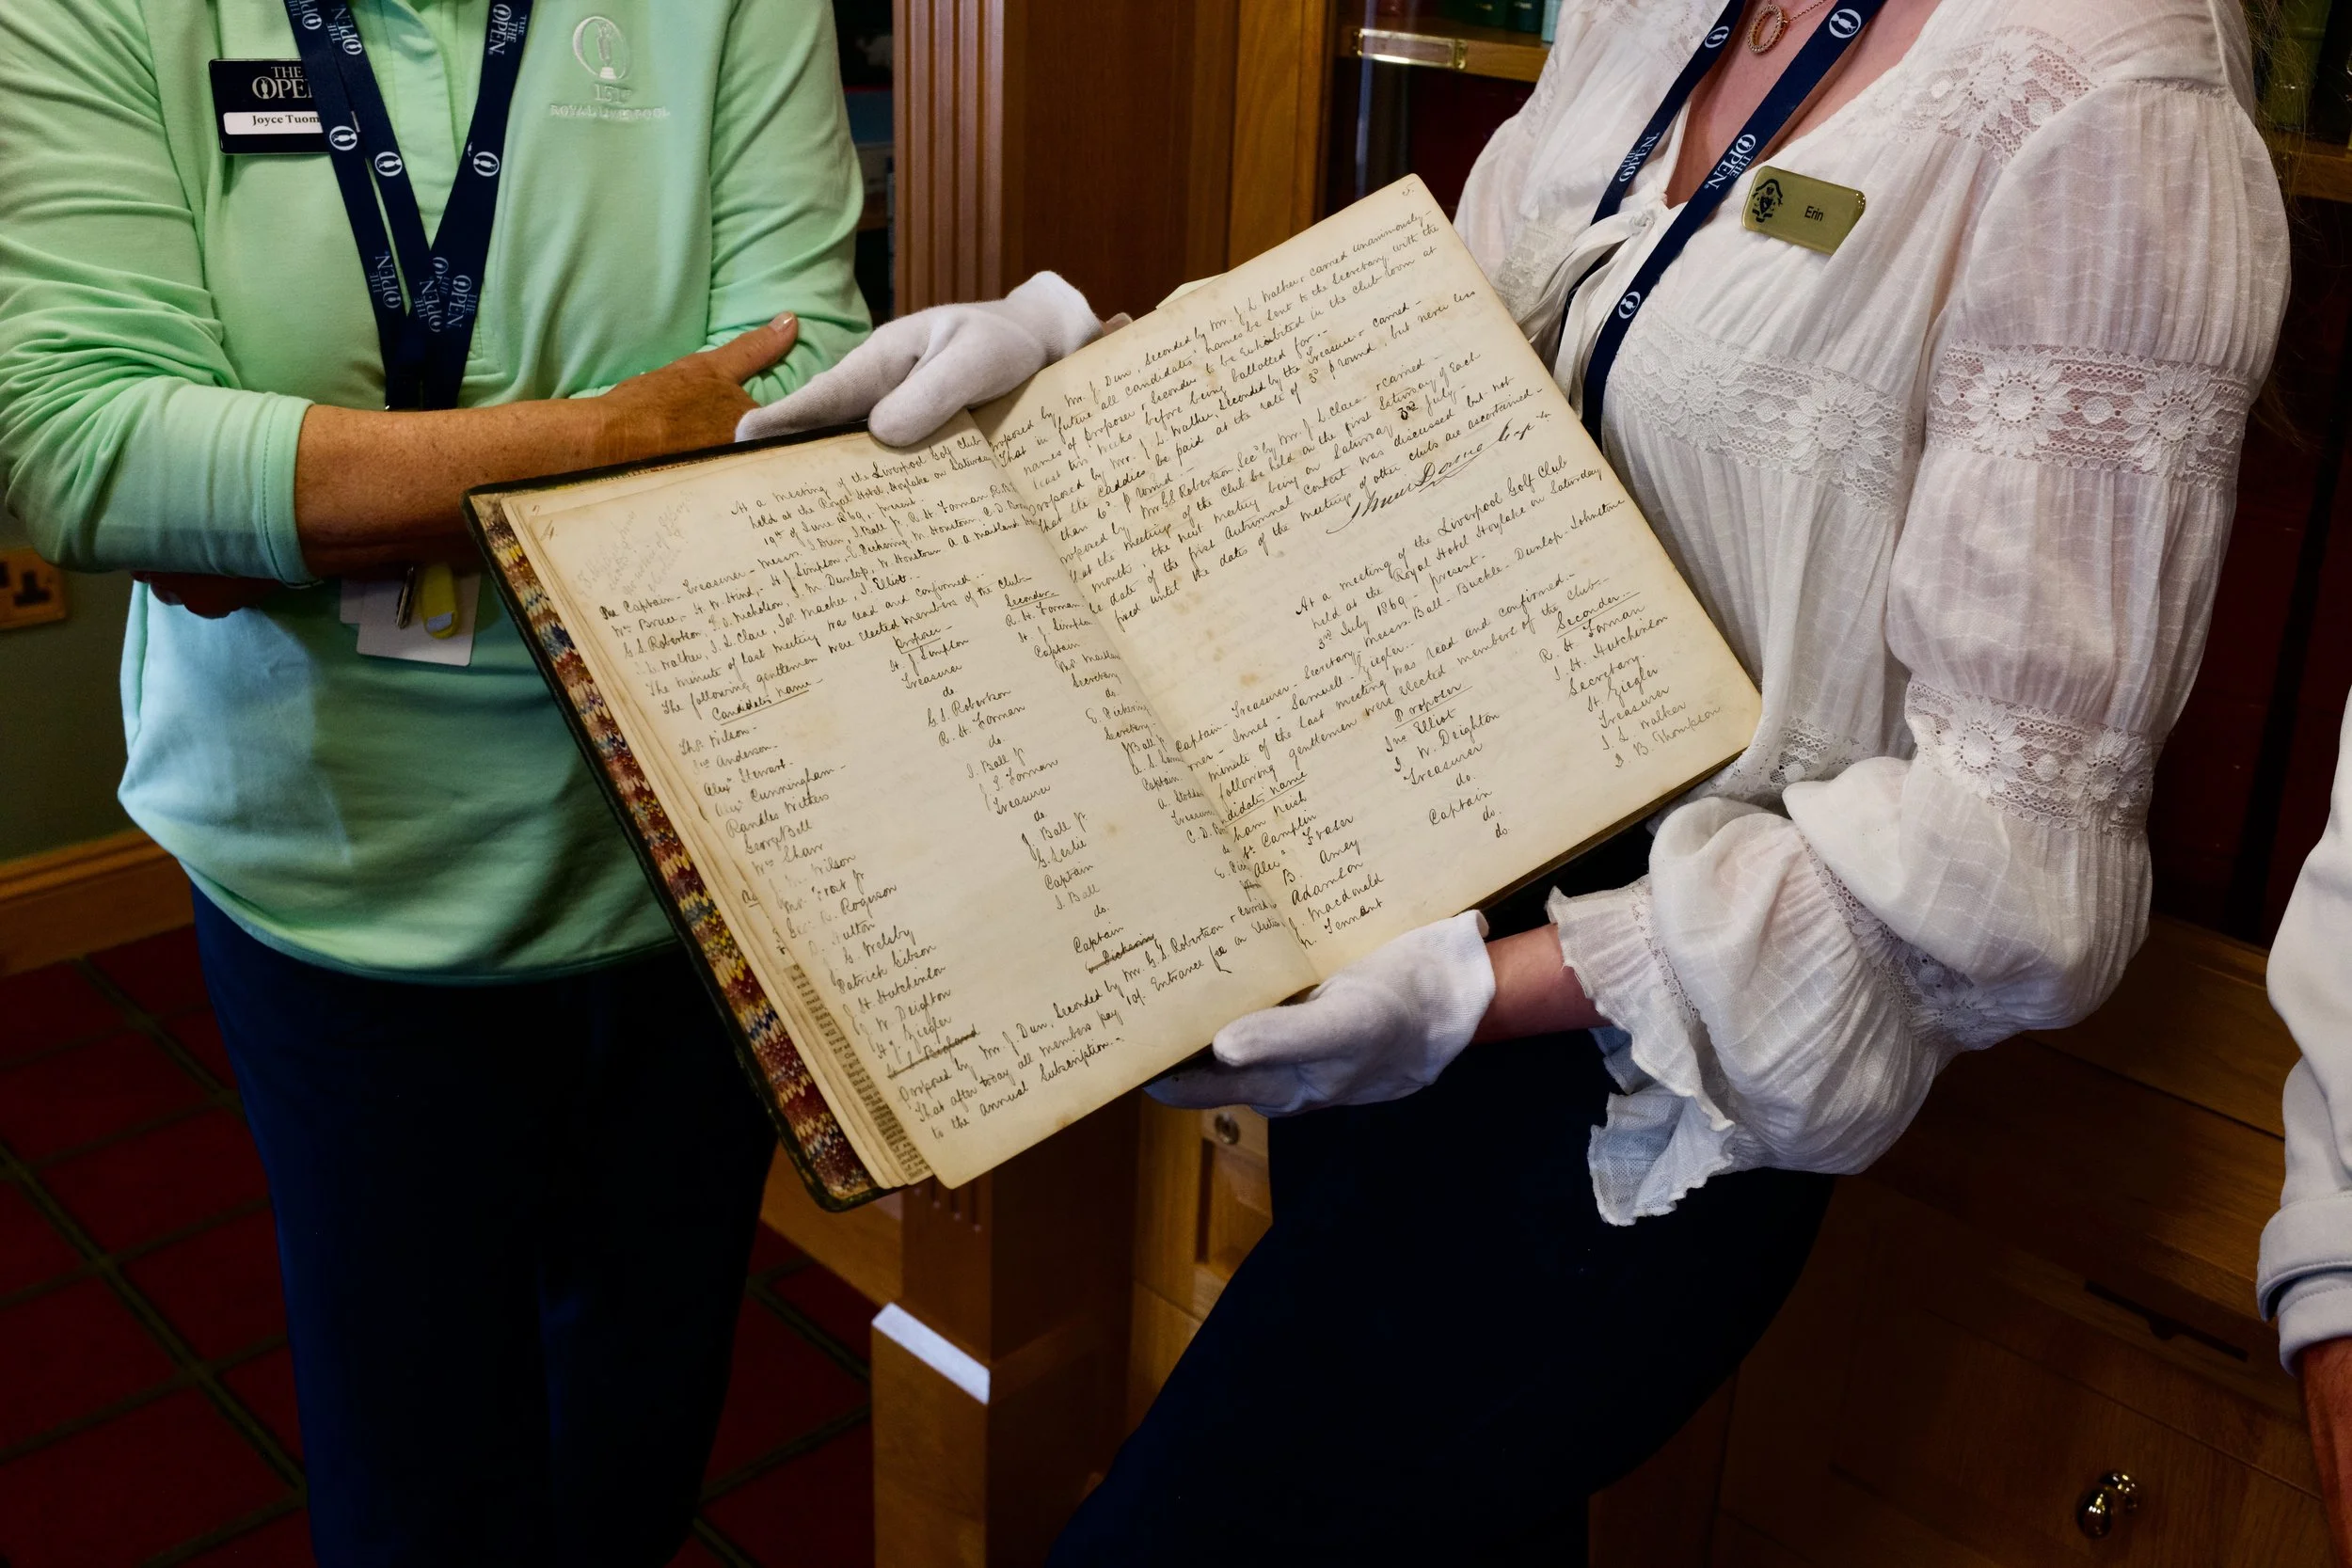 THE
OPEN
Joyce Tuom
THE OPEN
THE OPEN
THE OPEN
THE OPEN
151ST
ROYAL LIVERPOOL
THE OPEN
THE OPEN
Erin
4
At a meeting of the Liverpool Golf Club
held at the Royal Hotel, Hoylake on Saturday
19th of June 1869, present.
The Captain - Treasurer - Messrs J Dun, J. Ball Jr. R. H. Forman
Wm Bruce, H. W. Hind, H. J. Simpton, E. Pickering, W. Houstoun, C. D.
G. S. Robertson, Nicholson, J. M. Dunlop, W. Houstoun A. A. Maitland
J. L. Walker, J. L. Clare, Jas Mackie, J. Elliot.
The minute of last meeting was read and confirmed.
The following gentlemen were elected members of the Club
Candidates name Proposer Seconder
Thos. Wilson H. J. Simpton R. H. Forman
Jno Anderson Treasurer H. J. Simpton
Alexr Stewart do Captain
Alexr Cunningham G. S. Robertson
Randles Withers R. H. Forman Secretary
George Bell do. do.
Wm Shaw J. Ball Jr E. Pickering
J. M. Wilson Forman Secretary
Mr. Frost Jr Treasurer J Ball Jr
Geo. R. Rogerson do
Fulton J. Ball Jr Captain
G. Welsby G. Leslie
Patrick Gibson Captain
J. H. Hutchinson J. Ball
W. Deighton do.
H. J. Ziegler Captain
Proposed by Mr. J. Dun, Seconded by Mr. G. S. Robertson & carried
That after today all members pay 10/. Entrance fee in
to the annual Subscription.
5
Proposed by Mr. J Dun, Seconded by Mr. J L Walker & carried unanimously
That in future all candidates names be sent to the Secretary, with the
names of Proposer & Seconder to be Exhibited in the Club-room at
least two weeks before being ballotted for.
Proposed by Mr. J. L. Walker, Seconded by the Treasurer & carried
that the Caddies be paid at the rate of 3d p round, but never less
than 6d p round
Proposed by Mr. G. S. Robertson, Secd by Mr. J. L. Clare & carried
that the meetings of the Club be held on the first Saturday of each
month; the next meeting being on Saturday 3rd July
The date of the first Autumnal Contest was discussed but not
fixed until the dates of the meetings of other clubs are ascertained
At a meeting of the Liverpool Golf Club
held at the Royal Hotel Hoylake on Saturday
3rd July 1869 present
Captain - Treasurer - Secretary - Messrs. Ball - Buckle - Dunlop - Johnstone
Innes - Samuell - Ziegler
minute of the last meeting was read and confirmed
following gentlemen were elected members of the Club
Candidates name Proposer Seconder
Jno Elliot R. H. Forman
Camplin J. W. Deighton J. H. Hutchinson
Alexr Fraser Treasurer Secretary.
B. Amey do. H. Ziegler
Adamson Captain Treasurer
J. Macdonald do. J. L Walker
Tennant do. J. B. Thompson